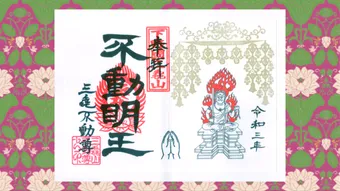 令和三年
奉拝
不動明王
不動尊